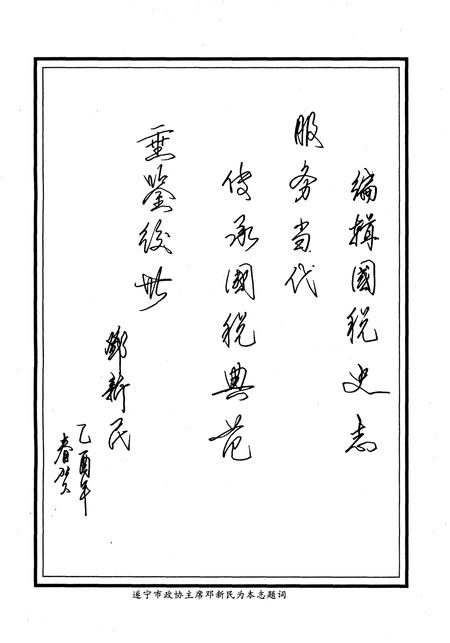 编辑國税史志
服务当代
传承國税典范
垂鉴後世
邓新民
乙酉年
春贺
遂宁市政协主席邓新民为本志题词